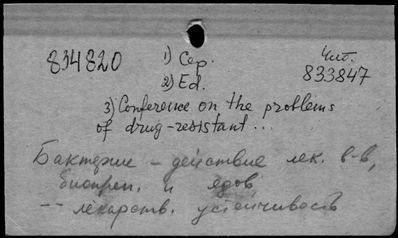 834820
1) Сер.
Чит.
2) Ed.
833847
3) Conference on the problems
of drug-resistant...
Бактерии – действие лек. в-в,
биопреп. и ядов
-- лекарств. устойчивость